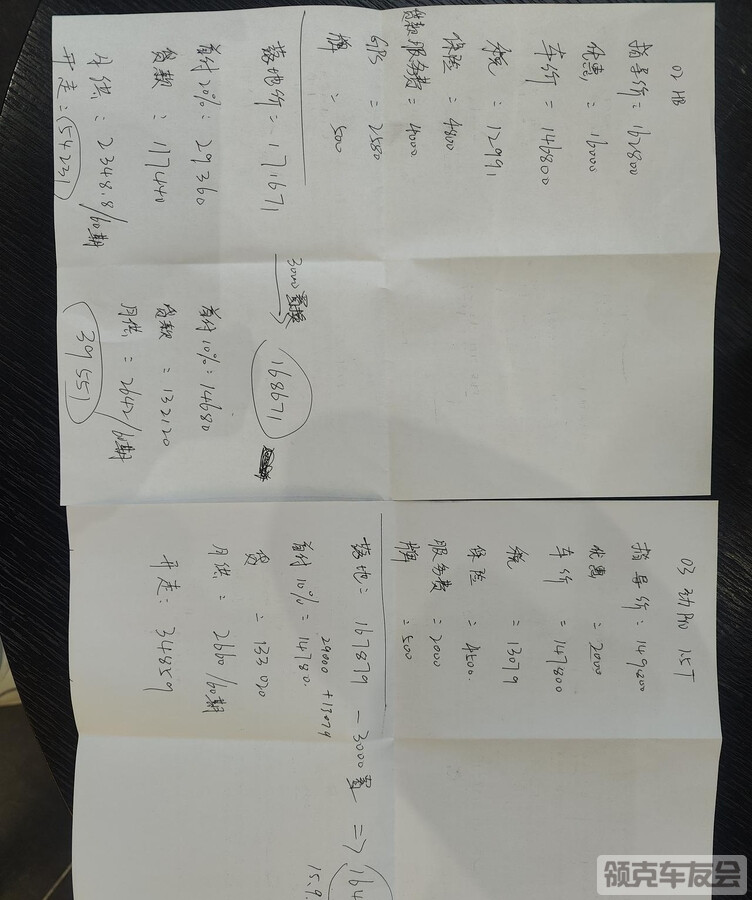 02 HB
指导价 = 162800
优惠 = 16000
车价 = 146800
税 = 12991
保险 = 4800
贷款服务费 = 4000
GPS = 2580
牌 = 500
落地价 = 171671
3000置换
168671
首付20% = 29360
贷款 : 117440
月供 : 2348.8/60期
开走 : 54231
首付10% = 14680
贷款 = 132120
月供 = 2642/60期
39551
03 动力 1.5T
指导价 = 149800
优惠 = 2000
车价 = 147800
税 = 13079
保险 = 4500
服务费 = 2000
牌 = 500
落地 = 167879 - 3000置 =>
164
15.9.
29000 + 13079
首付10% = 14780.
贷 = 133020
月供 = 2660/60期
开走 : 34859
领克车友会